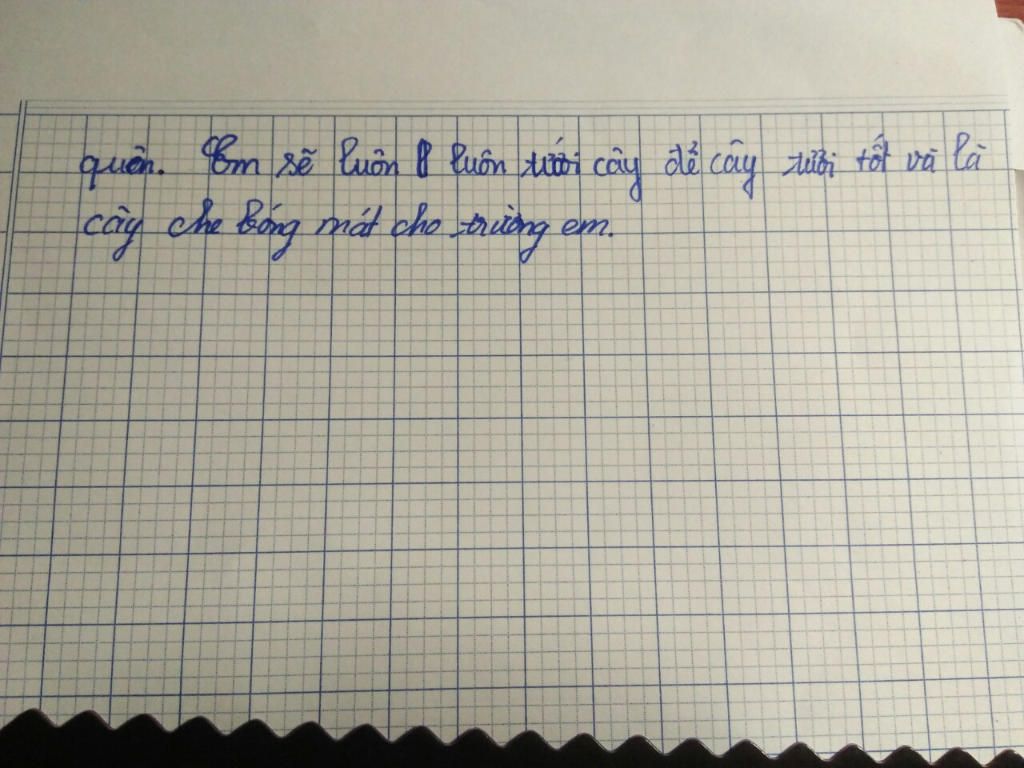 quên. Em sẽ luôn luôn tưới cây để cây tươi tốt và là
cây che bóng mát cho trường em.